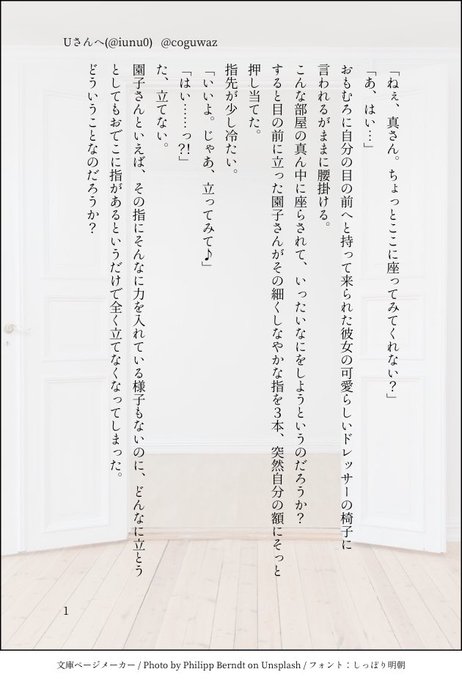 Uさんへ(@iunu0)　@coguwaz
「ねぇ、真さん。ちょっとここに座ってみてくれない？」
「あ、はい…」
おもむろに自分の目の前へと持って来られた彼女の可愛らしいドレッサーの椅子に
言われるがままに腰掛ける。
こんな部屋の真ん中に座らされて、いったいなにをしようというのだろうか？
すると目の前に立った園子さんがその細くしなやかな指を３本、突然自分の額にそっと
押し当てた。
指先が少し冷たい。
「いいよ。じゃあ、立ってみて♪」
「はい……っ?!」
た、立てない。
園子さんといえば、その指にそんなに力を入れている様子もないのに、どんなに立とう
としてもおでこに指があるというだけで全く立てなくなってしまった。
どういうことなのだろうか？
1
文庫ページメーカー / Photo by Philipp Berndt on Unsplash / フォント：しっぽり明朝